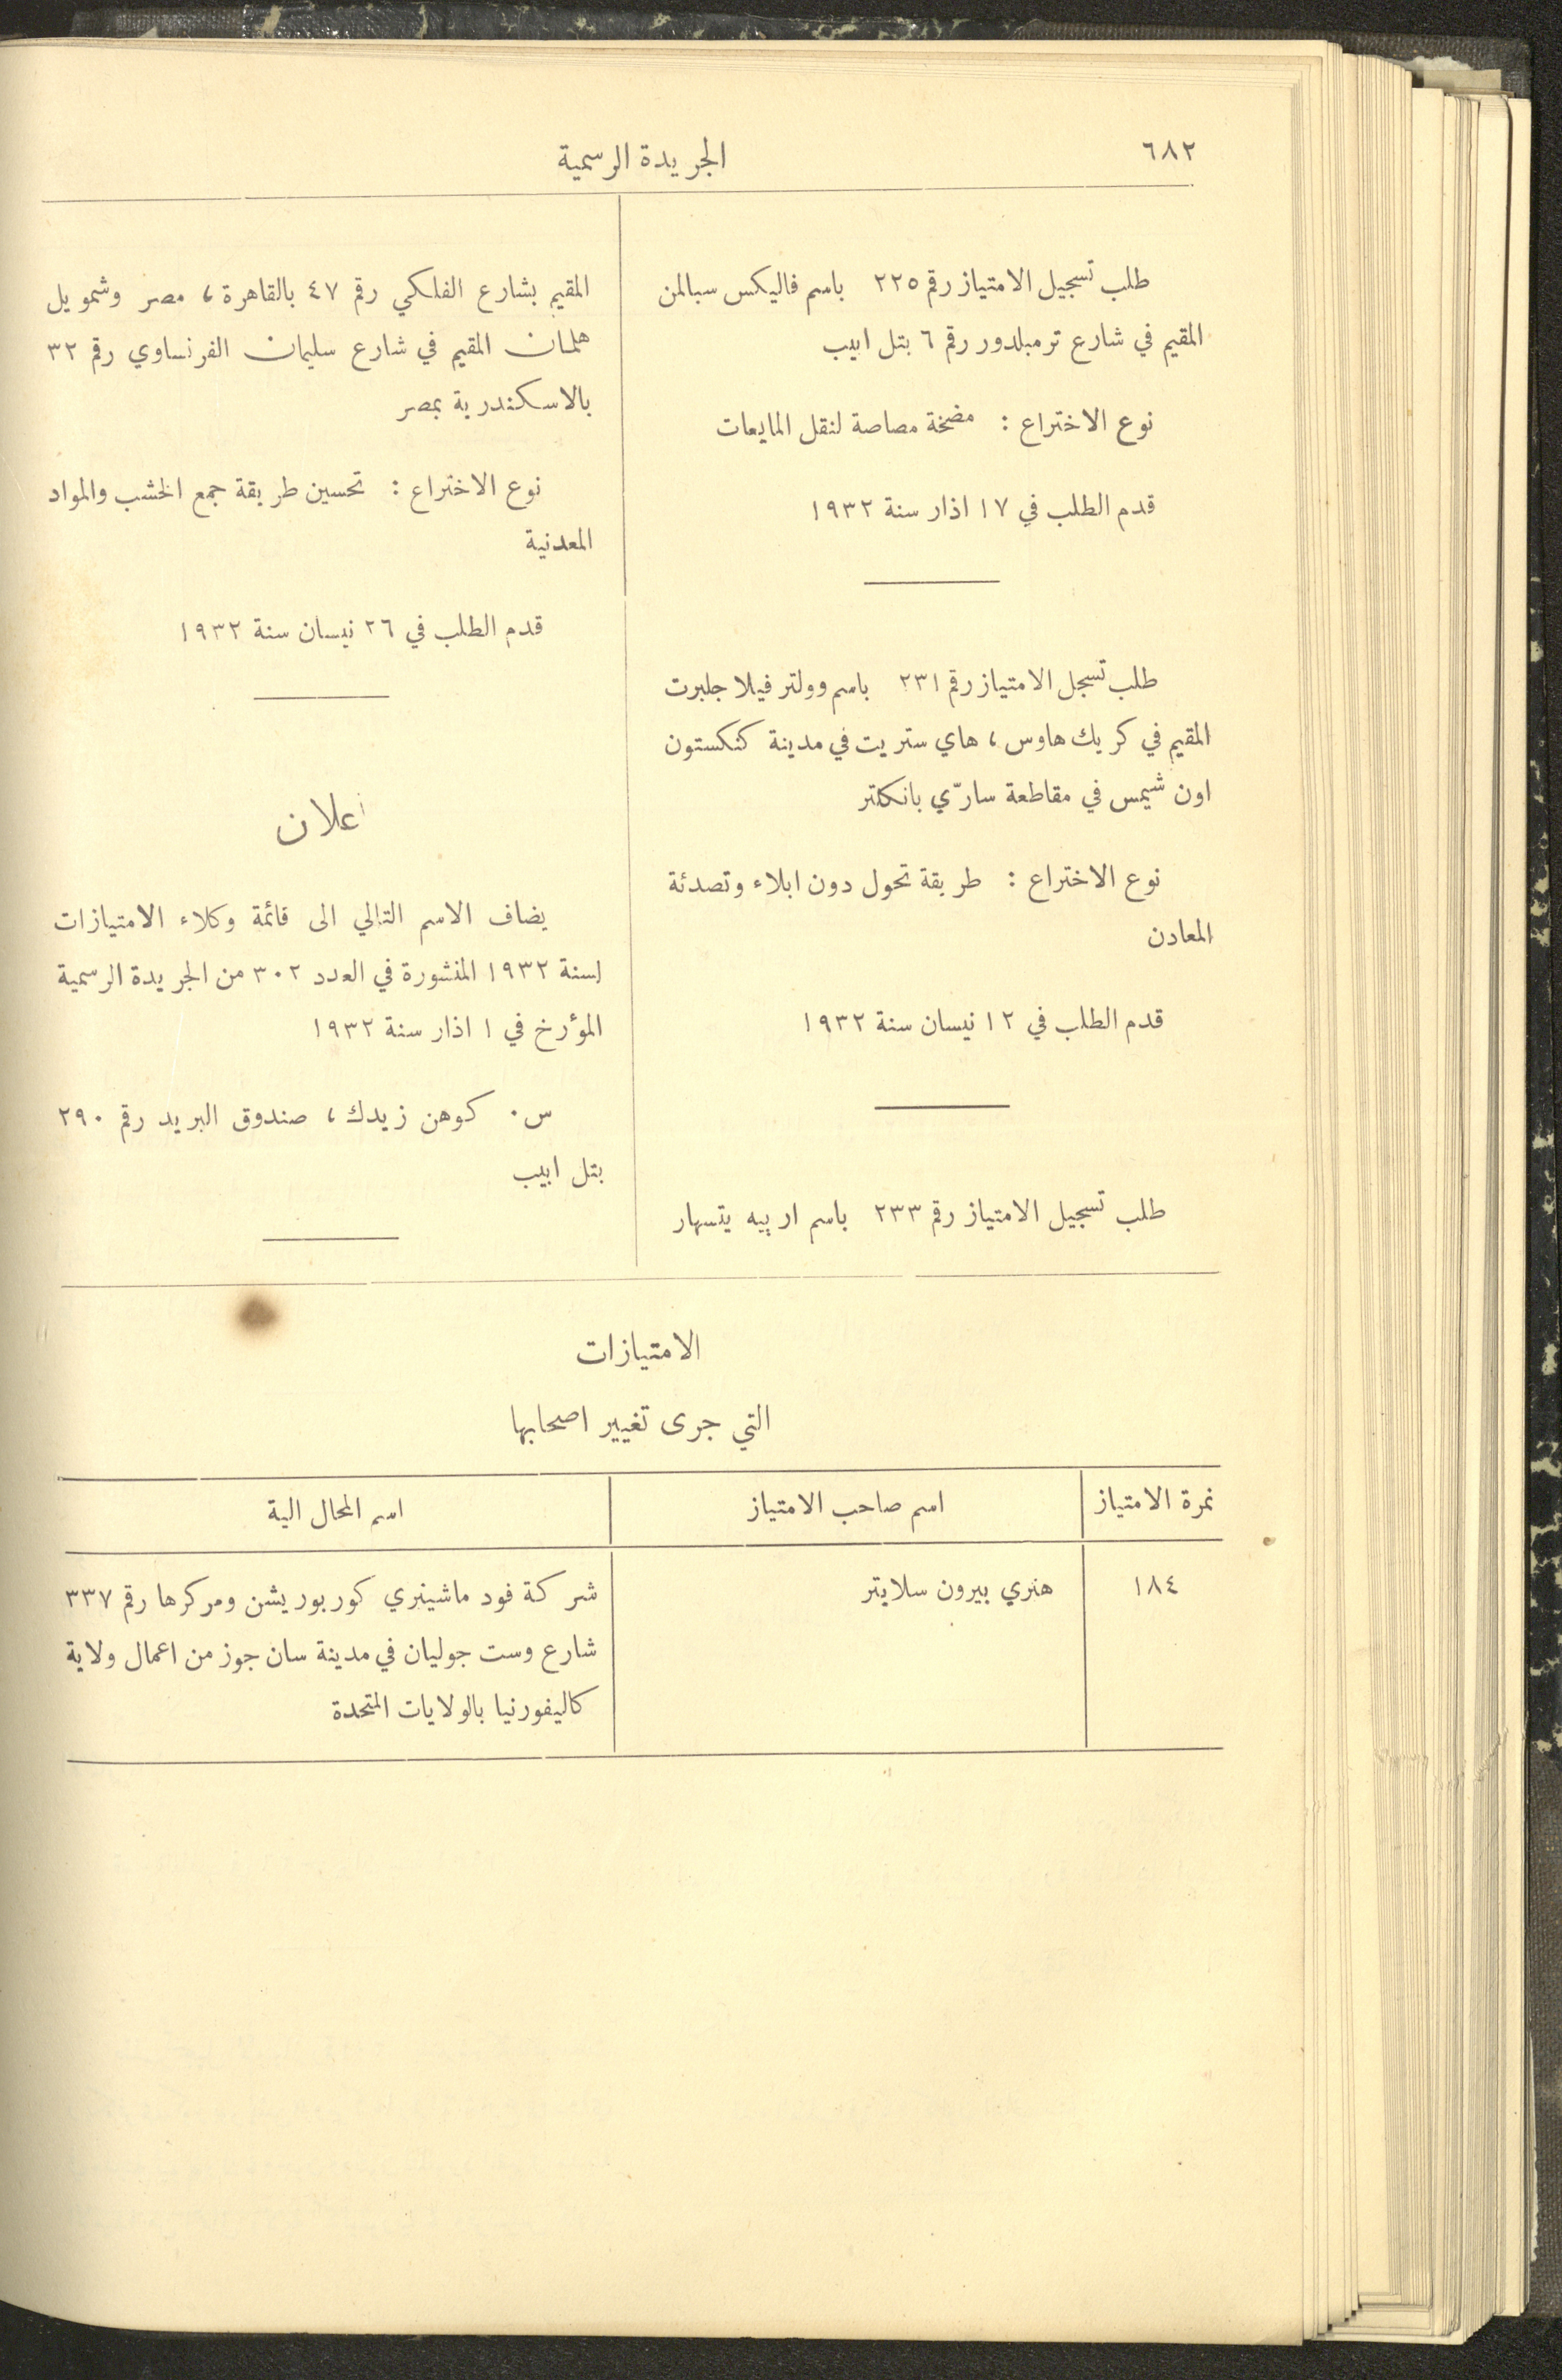 ٦٨٢
الجريدة الرسمية
طلب تسجيل الامتياز رقم ٢٢٥ باسم فاليكس سبالمن
المقيم في شارع ترمبلدور رقم ٦ بتل ابيب
نوع الاختراع : مضخة مصاصة لنقل المايعات
قدم الطلب في ١٧ اذار سنة ١٩٣٢
طلب تسجل الامتياز رقم ٢٣١ باسم وولتر فيلا جلبرت
المقيم في كريك هاوس ، هاي ستريت في مدينة كنكستون
اون شيمس في مقاطعة سارّي بانكلتر
نوع الاختراع : طريقة تحول دون ابلاء وتصدئة
المعادن
قدم الطلب في ١٢ نيسان سنة ١٩٣٢
طلب تسجيل الامتياز رقم ٢٣٣ باسم اربيه يتسهار
المقيم بشارع الفلكي رقم ٤٧ بالقاهرة ، مصر وشمويل
هلمان المقيم في شارع سليمان الفرنساوي رقم ٣٢
بالاسكندرية بمصر
نوع الاختراع : تحسين طريقة جمع الخشب والمواد
المعدنية
قدم الطلب في ٢٦ نيسان سنة ١٩٣٢
اعلان
يضاف الاسم التالي الى قائمة وكلاء الامتيازات
لسنة ١٩٣٢ المنشورة في العدد ٣٠٢ من الجريدة الرسمية
المؤرخ في ١ اذار سنة ١٩٣٢
س . كوهن زيدك ، صندوق البريد رقم ٢٩٠
بتل ابيب
الامتيازات
التي جرى تغيير اصحابها
نمرة الامتياز اسم صاحب الامتياز اسم المحال الية
١٨٤ هنري بيرون سلايتر شركة فود ماشينري كوربوريشن ومركرها رقم ٣٣٧
شارع وست جوليان في مدينة سان جوز من اعمال ولاية
كاليفورنيا بالولايات المتحدة